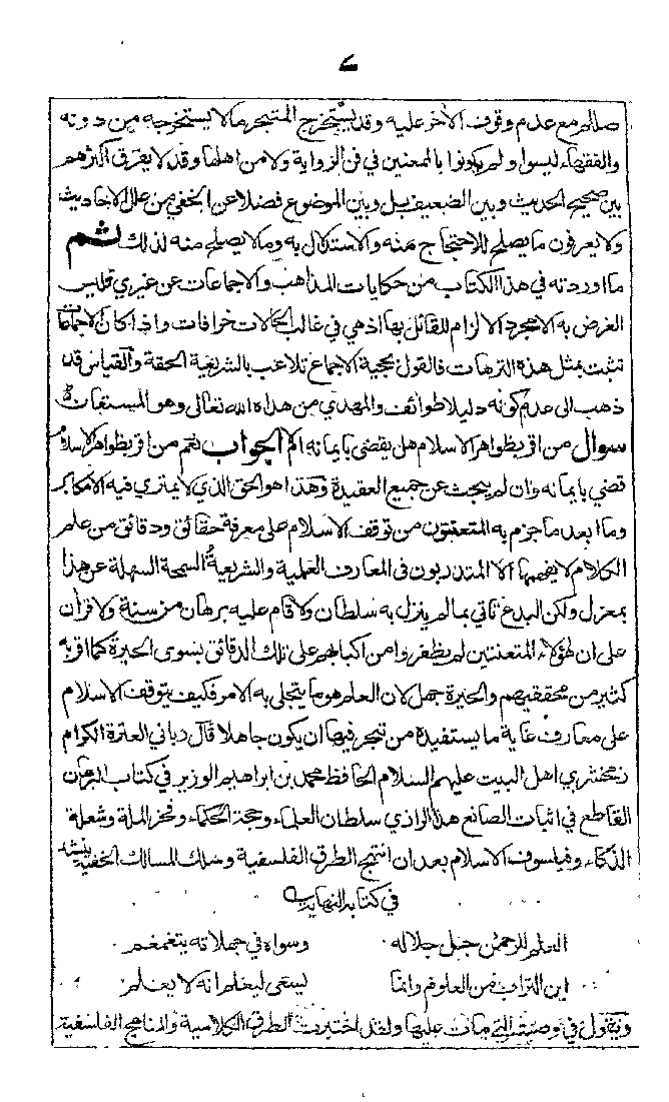 ٧
صالح مع عدم وقوف الآخر عليه وقد يستخرج المتبحر ما لا يستخرجه من دونه
والفقهاء ليسوا ولم يكونوا بالمعنين في فن الرواية ولا من اهلها وقد لا يفرق اكثرهم
بين صحيح الحديث وبين الضعيف بل وبين الموضوع فضلا عن الخفي من علل الاحاديث
ولا يعرفون ما يصلح للاحتجاج منه والاستدلال به وما لا يصلح منه لذلك ثم
ما اوردته في هذا الكتاب من حكايات المذاهب والاجماعات عن غيري فليس
الغرض به الا مجرد الالزام للقائل بها اذ هي في غالب الحالات خرافات واذا كان الاجماعات
تثبت بمثل هذه الترهات فالقول بحجية الاجماع تلاعب بالشريعة الحقة والقياس قد
ذهب الى عدم كونه دليلا طوائف والمهدي من هداه الله تعالى وهو المستعان
سوال من اقر بظواهر الاسلام هل يقضى بايمانه ام لا الجواب نعم من اقر بظواهر الاسلام
قضي بايمانه وان لم يبحث عن جميع العقيدة وهذا هو الحق الذي لا يمتري فيه الا مكابر
وما ابعد ما جزم به المتعمقون من توقف الاسلام على معرفة حقائق ودقائق من علم
الكلام لا يفهمها الا المتدربون في المعارف العلمية والشريعة السمحة السهلة عن هذا
بمعزل ولكن البدع تاتي بما لم ينزل به سلطان ولا قام عليه برهان من سنة ولا قرآن
على ان هؤلاء المتعنتين لم يظفروا من اكبابهم على تلك الدقائق بسوى الحيرة كما اقر به
كثير من محققيهم والحيرة جهل لان العلم هو ما يتجلى به الامر فكيف يتوقف الاسلام
على معارف غاية ما يستفيده من تبحر فيها ان يكون جاهلا قال رباني العترة الكرام
زمخشري اهل البيت عليهم السلام الحافظ محمد بن ابراهيم الوزير في كتاب البرهان
القاطع في اثبات الصانع هذا الرازي سلطان العلماء وحجة الحكماء وفخر الملة وشعلة
الذكاء وفيلسوف الاسلام بعد ان انتهج الطرق الفلسفية وسلك المسالك الخفية ينشد
في كتابه النهاية
العلم للرحمن جل جلاله وسواه في جهلاته يتغمغم
اين التراب من العلوم وانما يسعى ليعلم انه لا يعلم
ويقول في وصيته التي مات عليها ولقد اختبرت الطرق الكلامية والمناهج الفلسفية